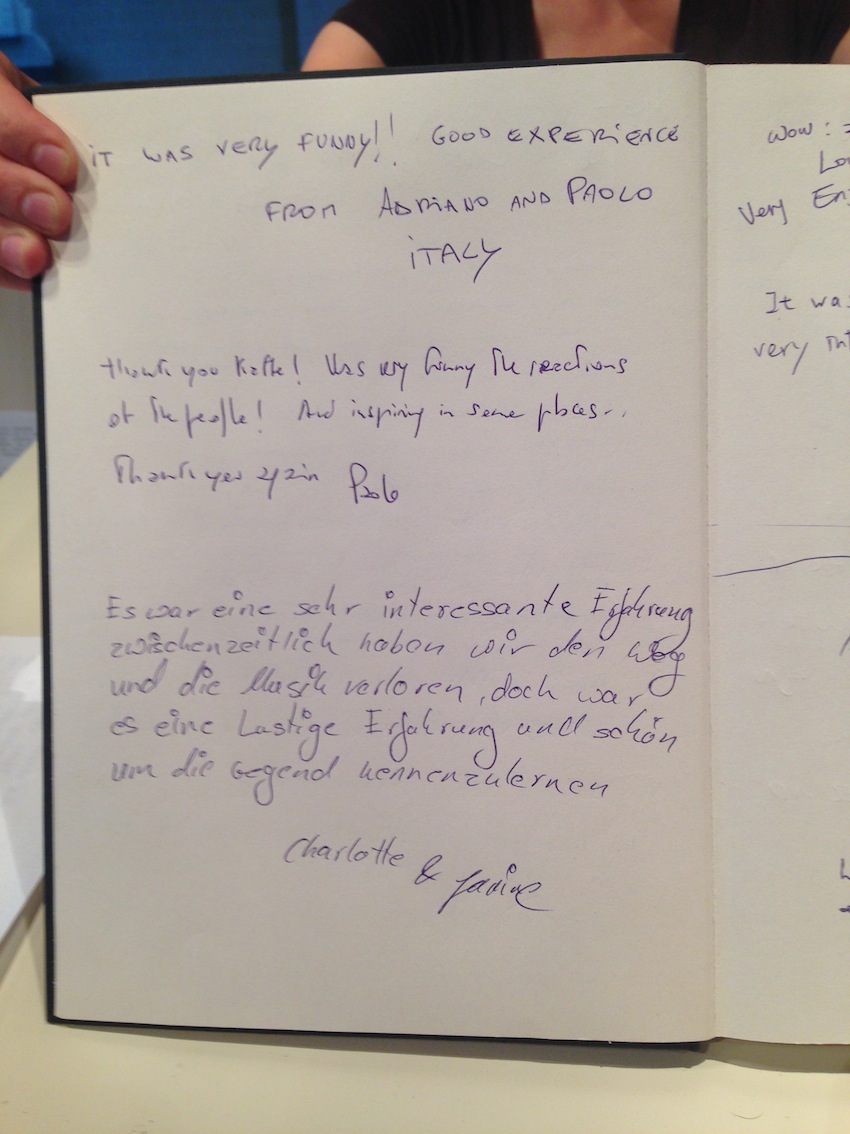 iT WAS VERY FUNNY!! GOOD EXPERiENCE
FROM ADRiANO AND PAOLO
iTALY
thank you Katke! Was very funny the reactions
of the people! And inspiring in some places...
Thank you again Paolo
Es war eine sehr interessante Erfahrung
zwischenzeitlich haben wir den Weg
und die Musik verloren, doch war
es eine Lustige Erfahrung und schön
um die Gegend kennenzulernen
Charlotte & Janine
Wow:
very
It was
very